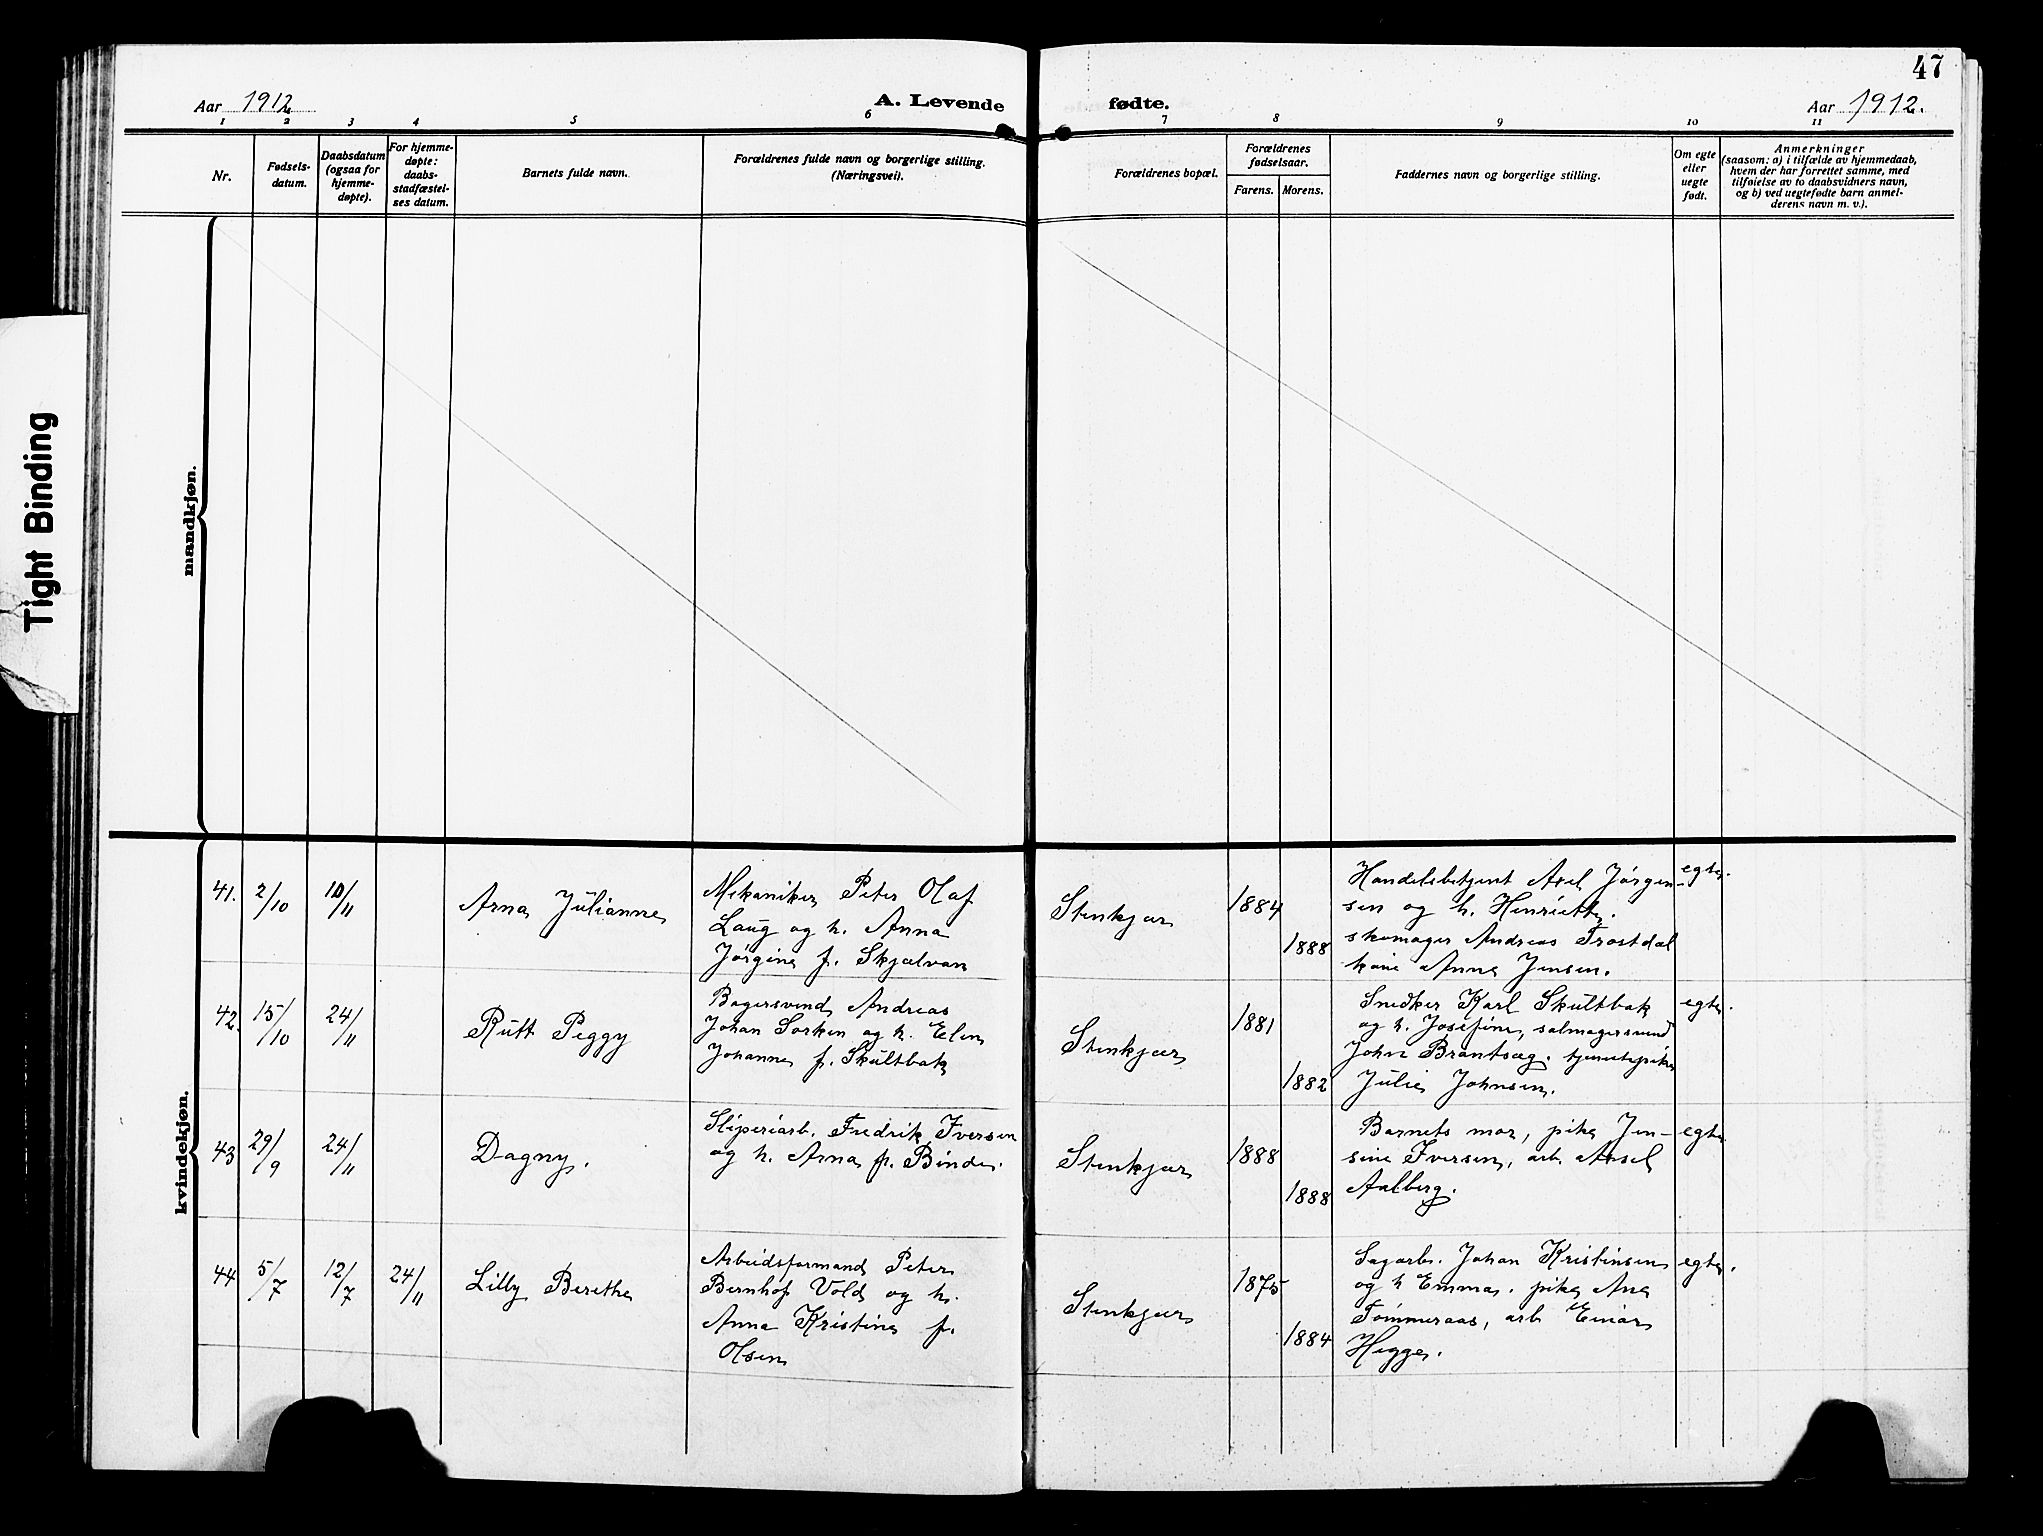 47
Aar 1912
A. Levende
fødte.
Aar 1912.
1 2 3 4 5 6 7 8 9 10 11
Nr.
Fødsels-
datum.
Daabsdatum
(ogsaa for
hjemme-
døpte).
For hjemme-
døpte:
daabs-
stadfæstel-
ses datum.
Barnets fulde navn.
Forældrenes fulde navn og borgerlige stilling.
(Næringsvei).
Forældrenes bopæl.
Forældrenes
fødselsaar.
Farens. Morens.
Faddernes navn og borgerlige stilling.
Om egte
eller
uegte
født.
Anmerkninger
(saasom: a) i tilfælde av hjemmedaab,
hvem der har forrettet samme, med
tilføielse av to daabsvidners navn,
og b) ved uegtefødte barn anmel-
derens navn m. v.).
Tight Binding
mandkjøn.
kvindekjøn.
41. 2/10 10/11
Arna Julianne
Mekaniker Peter Olaf
Laug og h. Anna
Jørgine f. Skjelvan
Stenkjær
1884
1888
Handelsbetjent Axel Jørgen-
sen og h. Henriette.
skomager Andreas Trostdal
kone Anna Jensen.
egte.
42. 15/10 24/11
Rutt Peggy
Bagersvend Andreas
Johan Sorken og h. Elen
Johanne f. Skultbak
Stenkjær
1881
1882
Snedker Karl Skultbak
og h. Josefine, salmagersvend
John Brantsæg. tjenestepike
Julie Johnsen.
egte.
43 29/9 24/11
Dagny.
Sliperiarb. Fredrik Iversen
og h. Arna f. Binde.
Stenkjær
1888
1888
Barnets mor, pike Jen-
sine Iversen, arb. Aksel
Aalberg.
egte
44 5/7 12/7 24/11
Lilly Berethe
Arbeidsformand Peter
Bernhof Vold og h.
Anna Kristine f.
Olsen
Stenkjær
1875
1884
Sagarb. Johan Kristinsen
og h Emma. pike Ane
Tømmeraas, arb Einar
Hegge.
egte.